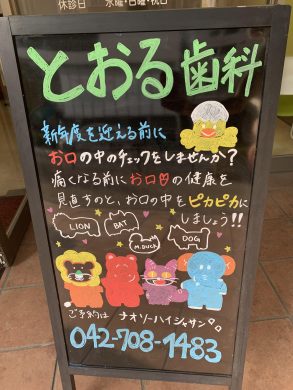 休診日 水曜・日曜・祝日
とおる歯科
新年度を迎える前に
お口の中のチェックをしませんか?
痛くなる前にお口の健康を
見直すのと、お口の中をピカピカに
しましょう!!
LION
BAT
M.DUCK
DOG
ご予約は ナオソーハイシャサン
042-708-1483